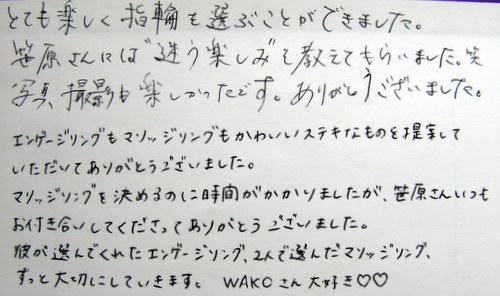 とても楽しく指輪を選ぶことができました。
笹原さんには"迷う楽しみ"を教えてもらいました。笑
写真撮影も楽しかったです。ありがとうございました。
エンゲージリングもマリッジリングもかわいいステキなものを提案して
いただいてありがとうございました。
マリッジリングを決めるのに時間がかかりましたが、笹原さんいつも
お付き合いしてくださってありがとうございました。
彼が選んでくれたエンゲージリング、2人で選んだマリッジリング、
ずっと大切にしていきます。 WAKOさん大好き♡♡